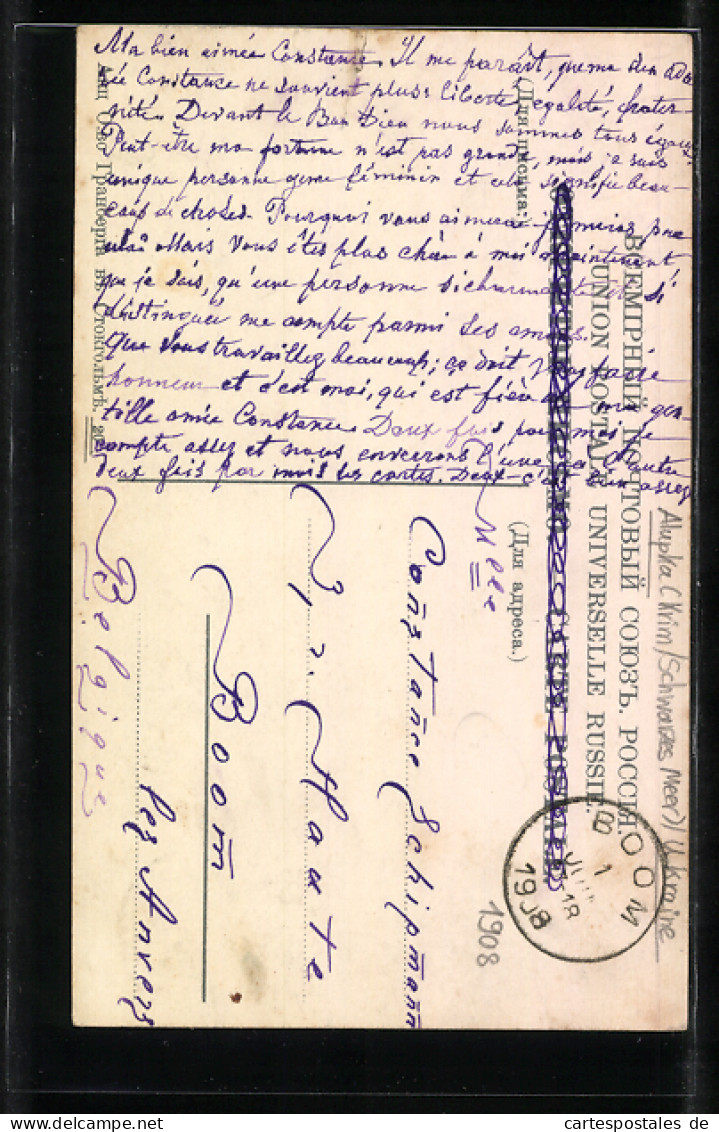 Ma bien aimée Constance. Il me paraît, que ma bien ado-
rée Constance ne souvient plus: liberté, egalité, frater-
nité. Devant le Bon Dieu nous sommes tous égaux.
Peut-être ma fortune n'est pas grande, mais je suis
unique personne genre féminin et cela signifie beau-
coup de choses. Pourquoi vous aimerai
Mais vous êtes plus chèr à moi maintenant
que je sais, qu'une personne si charmante et si
distinguée me compte parmi ses amies.
Que vous travaillez beaucoup; ça doit vous faire
honneur et c'est moi, qui est fière de ma gen-
tille amie Constance. Deux fois par mois je
compte assez et nous enverrons l'une à l'autre
deux fois par mois les cartes. Deux-c'est bien assez
(Для письма.)
Акц. О-во Гранбергъ въ Стокгольмѣ.
ВСЕМІРНЫЙ ПОЧТОВЫЙ СОЮЗЪ. РОССІЯ.
UNION POSTALE UNIVERSELLE RUSSIE.
CARTE POSTALE
(Для адреса.)
Melle
Constance Schipmann
Boom
lez Anvers
Belgique
BOOM
1
18
1908
1908
Alupka (Krim/Schwarzes Meer)/Ukraine
cartespostales.de